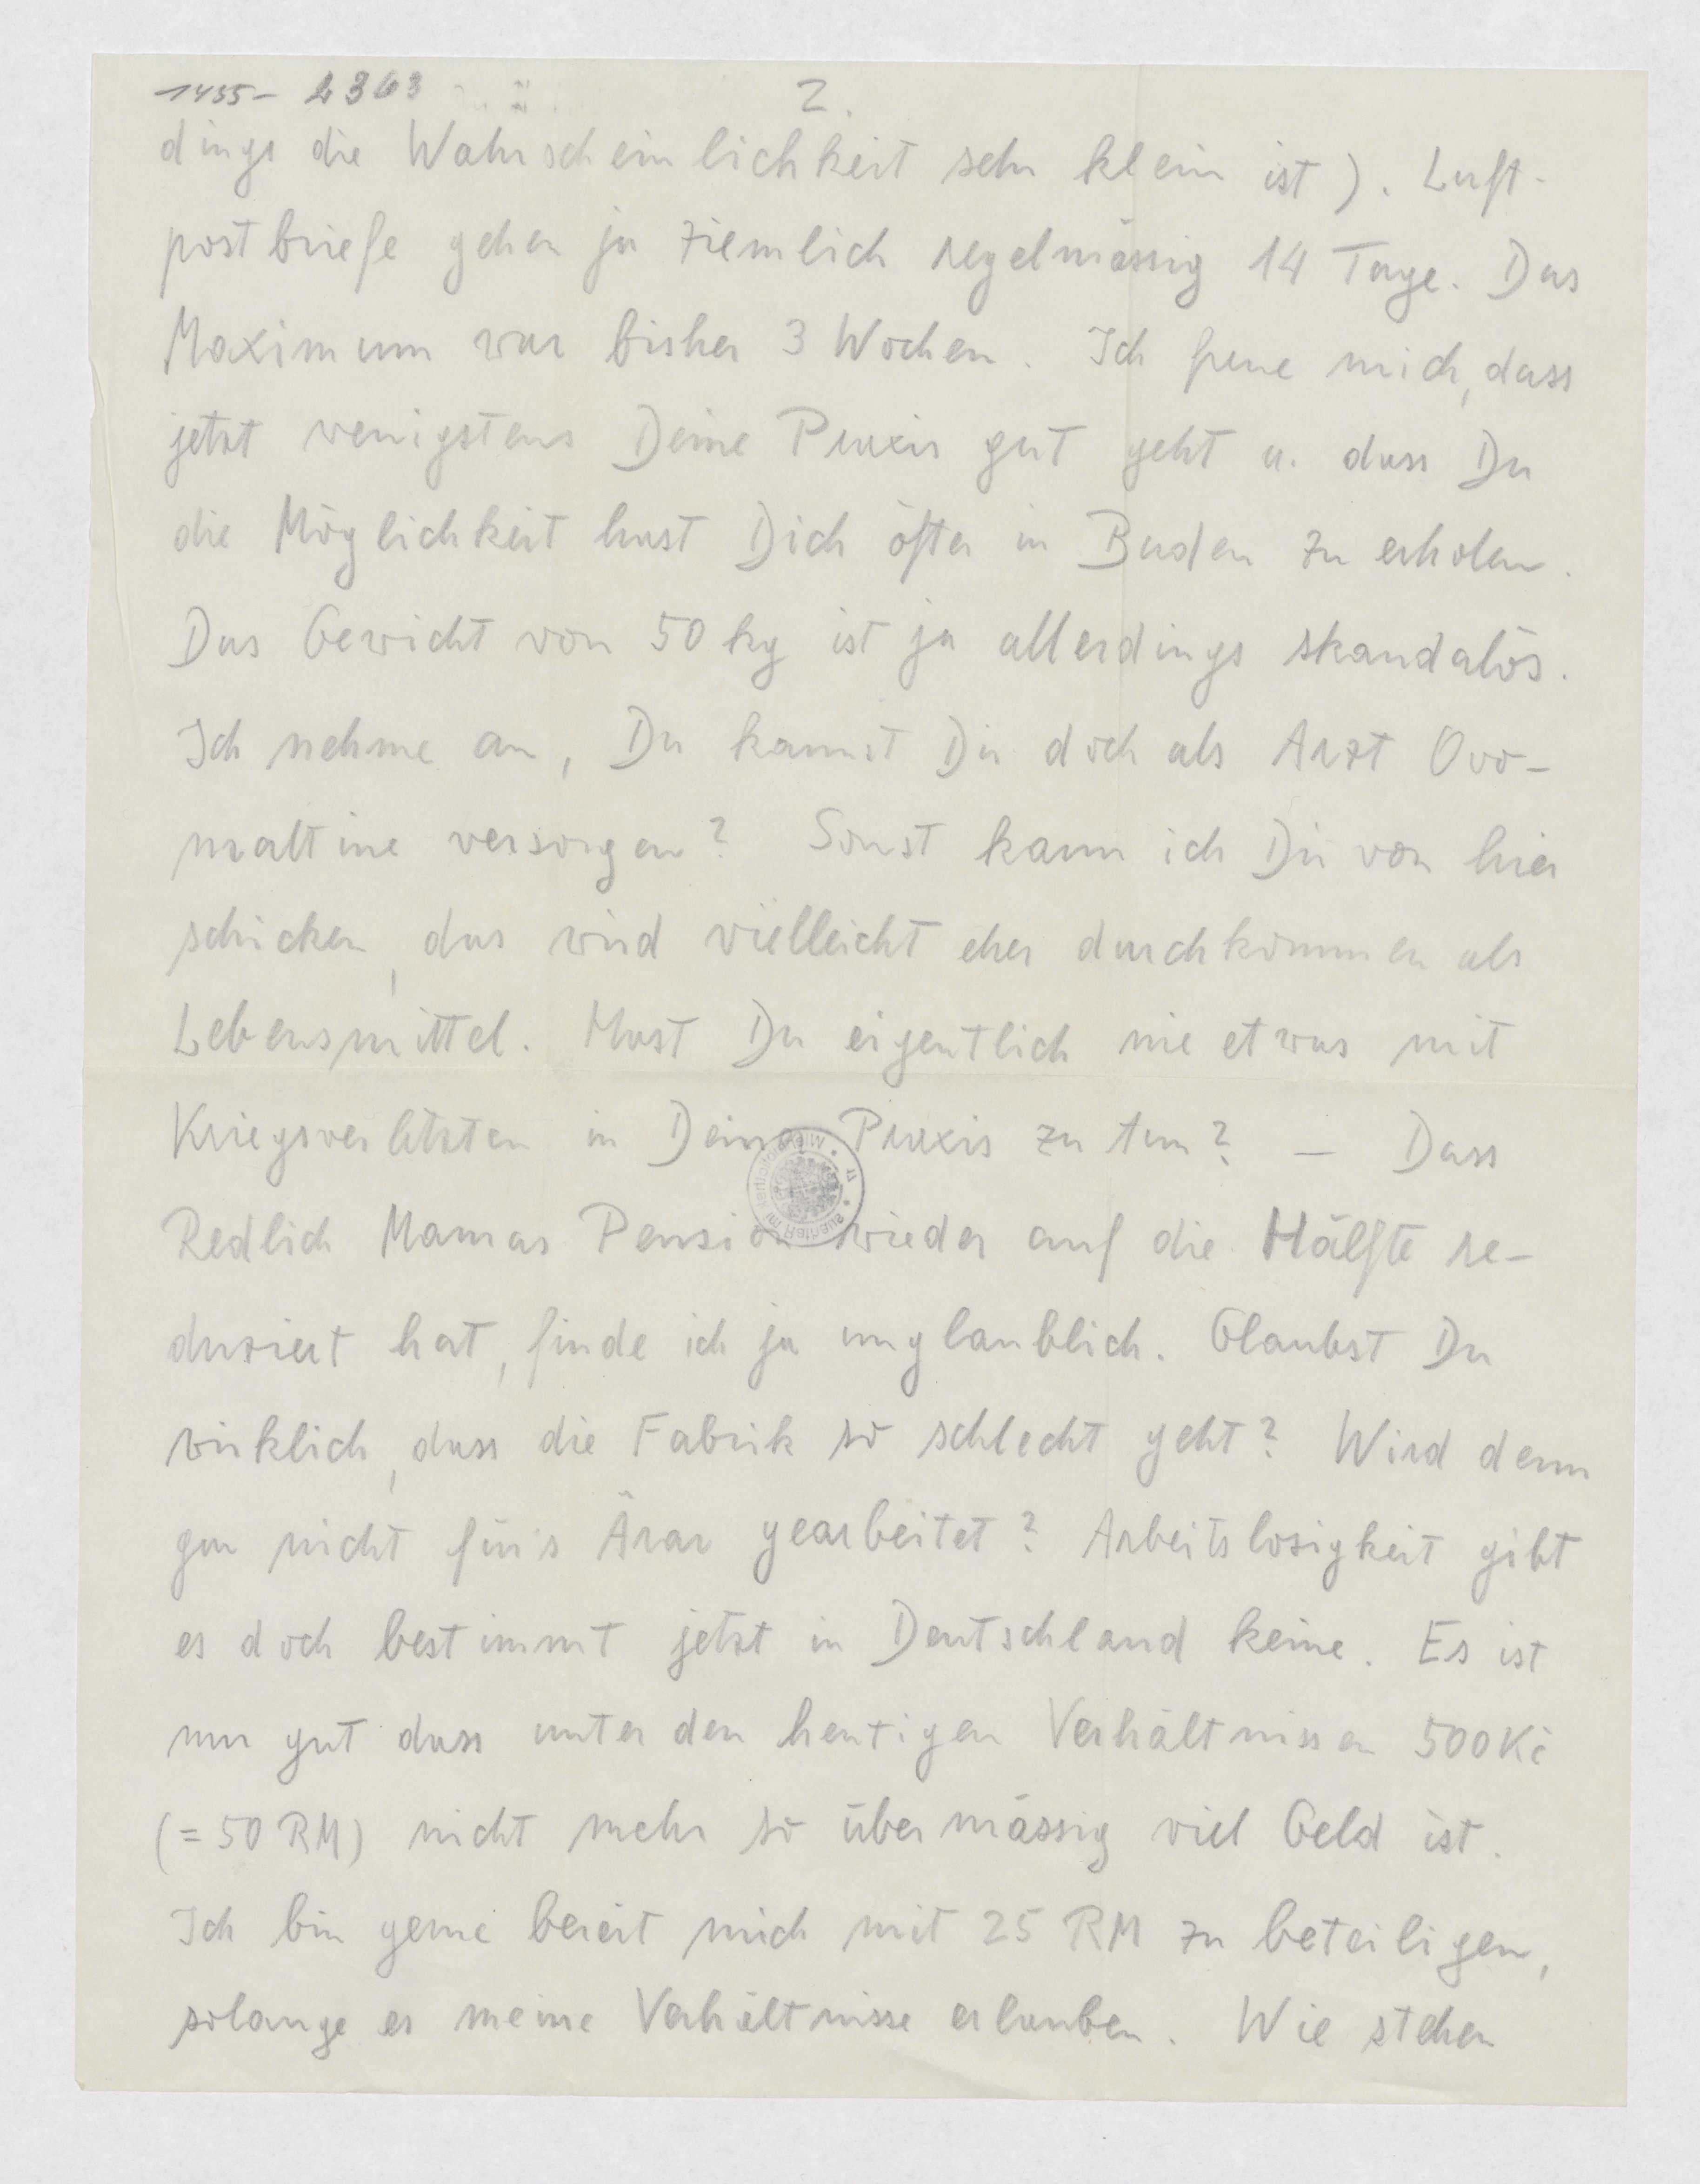 1455- 4363
2.
dings die Wahrscheinlichkeit sehr klein ist). Luft-
postbriefe gehen ja ziemlich regelmässig 14 Tage. Das
Maximum war bisher 3 Wochen. Ich freue mich, dass
jetzt wenigstens Deine Praxis gut geht u. dass Du
die Möglichkeit hast Dich öfter in Baden zu erholen.
Das Gewicht von 50 kg ist ja allerdings skandalös.
Ich nehme an, Du kannst Dir doch als Arzt Ovo-
maltine versorgen? Sonst kann ich Dir von hier
schicken, das wird vielleicht eher durchkommen als
Lebensmittel. Hast Du eigentlich nie etwas mit
Kriegsverletzten in Deiner Praxis zu tun? – Dass
Redlich Mamas Pension wieder auf die Hälfte re-
duziert hat, finde ich ja unglaublich. Glaubst Du
wirklich, dass die Fabrik so schlecht geht? Wird denn
gar nicht für's Ärar gearbeitet? Arbeitslosigkeit gibt
es doch bestimmt jetzt in Deutschland keine. Es ist
nur gut dass unter den heutigen Verhältnissen 500 Kč
(= 50 RM) nicht mehr so übermässig viel Geld ist.
Ich bin gerne bereit mich mit 25 RM zu beteiligen,
solange es meine Verhältnisse erlauben. Wie stehen